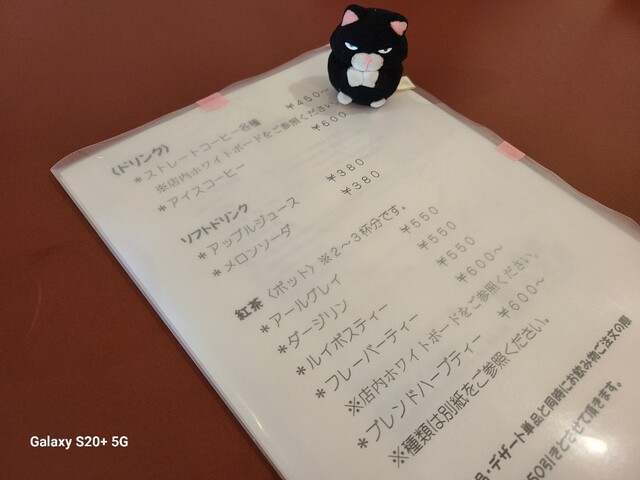 〈ドリンク〉
＊ストレートコーヒー各種 ￥４５０～
※店内ホワイトボードをご参照ください。
＊アイスコーヒー ￥６００
ソフトドリンク
＊アップルジュース ￥３８０
＊メロンソーダ ￥３８０
紅茶〈ポット〉※２～３杯分です。
＊アールグレイ ￥５５０
＊ダージリン ￥５５０
＊ルイボスティー ￥５５０
＊フレーバーティー ￥６００～
※店内ホワイトボードをご参照ください。
＊ブレンドハーブティー ￥６００～
※種類は別紙をご参照ください。
・デザート単品と同時にお飲み物ご注文の際
50引きとさせて頂きます。
Galaxy S20+ 5G